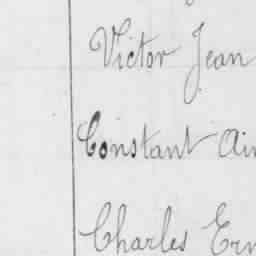 Victor Jean
Constant
Charles